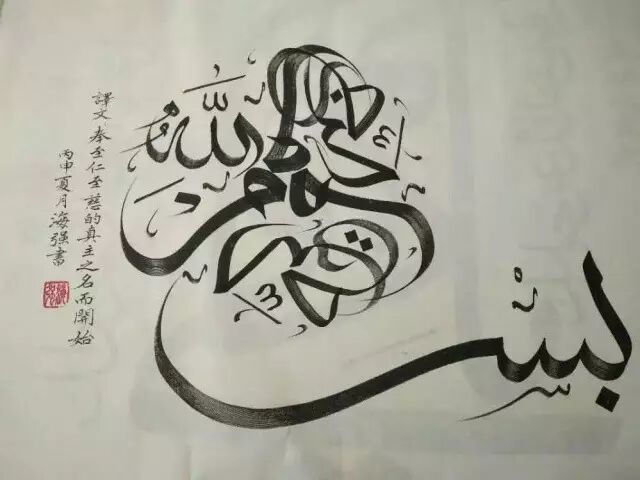 بسم الله الرحمن الرحيم
譯文 奉至仁至慈的真主之名而開始
丙申夏月海强書